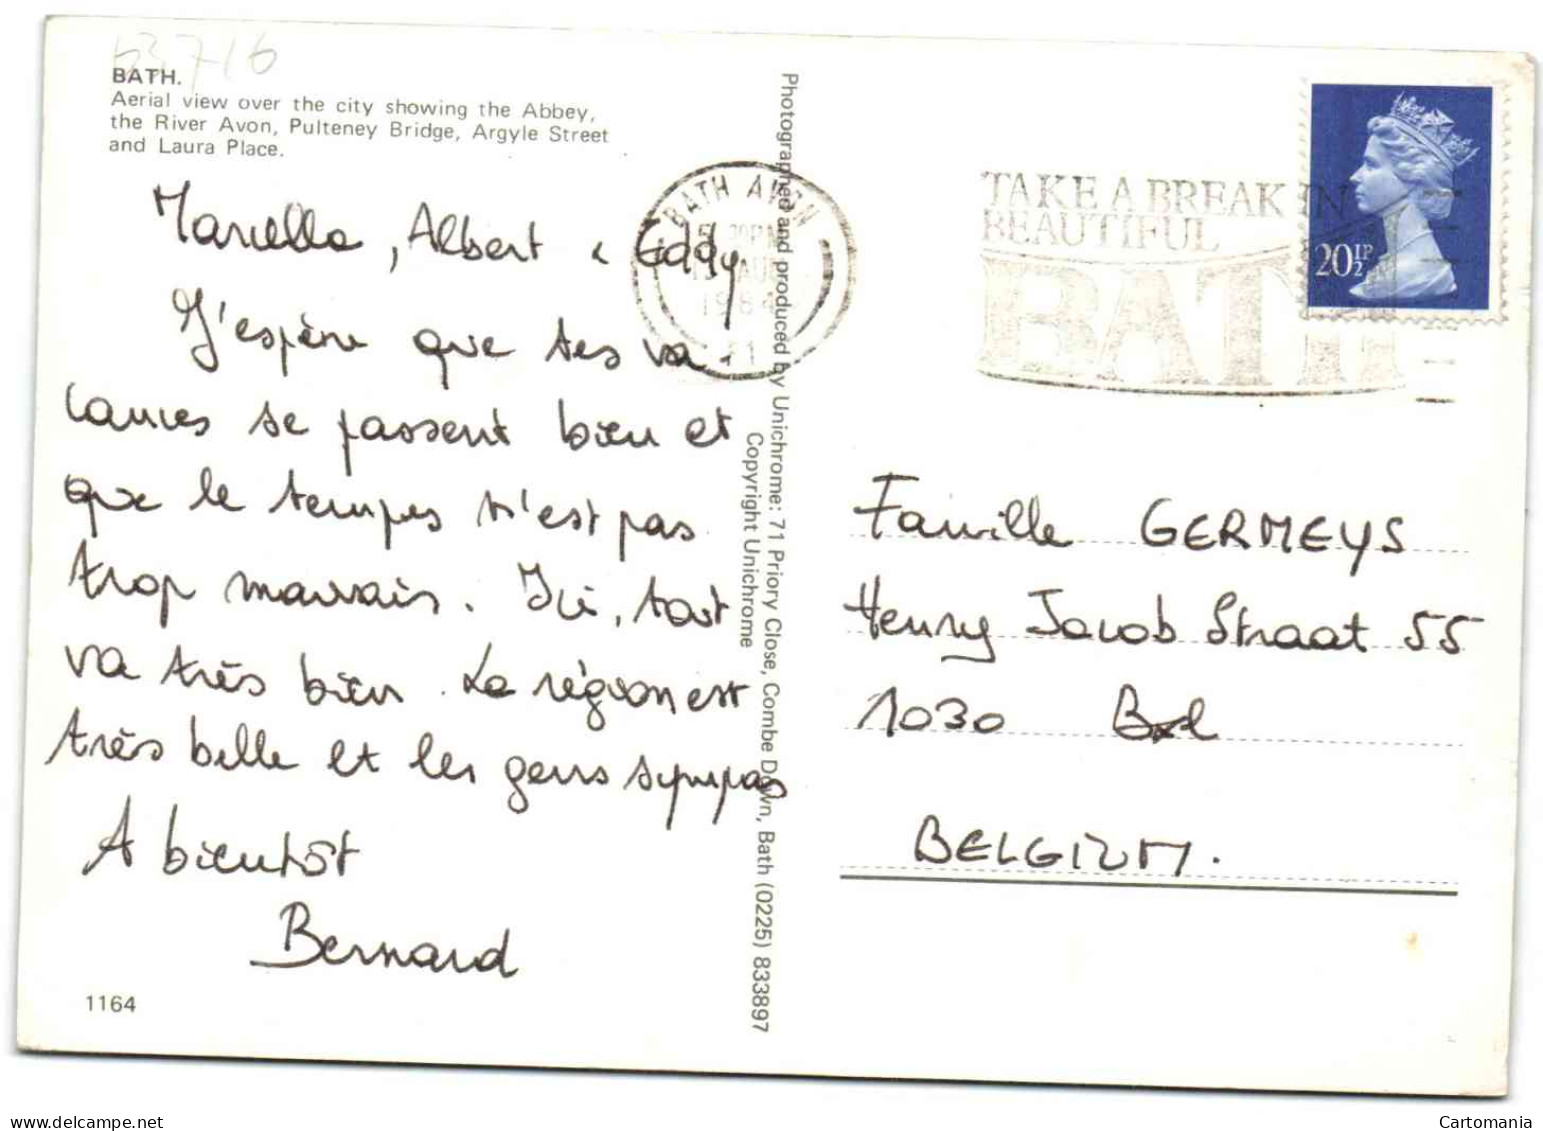 63716
BATH.
Aerial view over the city showing the Abbey,
the River Avon, Pulteney Bridge, Argyle Street
and Laura Place.
Marcella, Albert & Eddy
J'espère que tes va
cances se passent bien et
que le temps n'est pas
trop mauvais. Ici, tout
va très bien. La région est
très belle et les gens sympas
A bientôt
Bernard
1164
Photographed and produced by Unichrome: 71 Priory Close, Combe Down, Bath (0225) 833897
Copyright Unichrome
BATH AVON
5 30PM
AUG
1984
TAKE A BREAK IN
BEAUTIFUL
BATH
20½P
Famille GERMEYS
Henry Jacob Straat 55
1030 Bxl
BELGIUM.
Cartomania